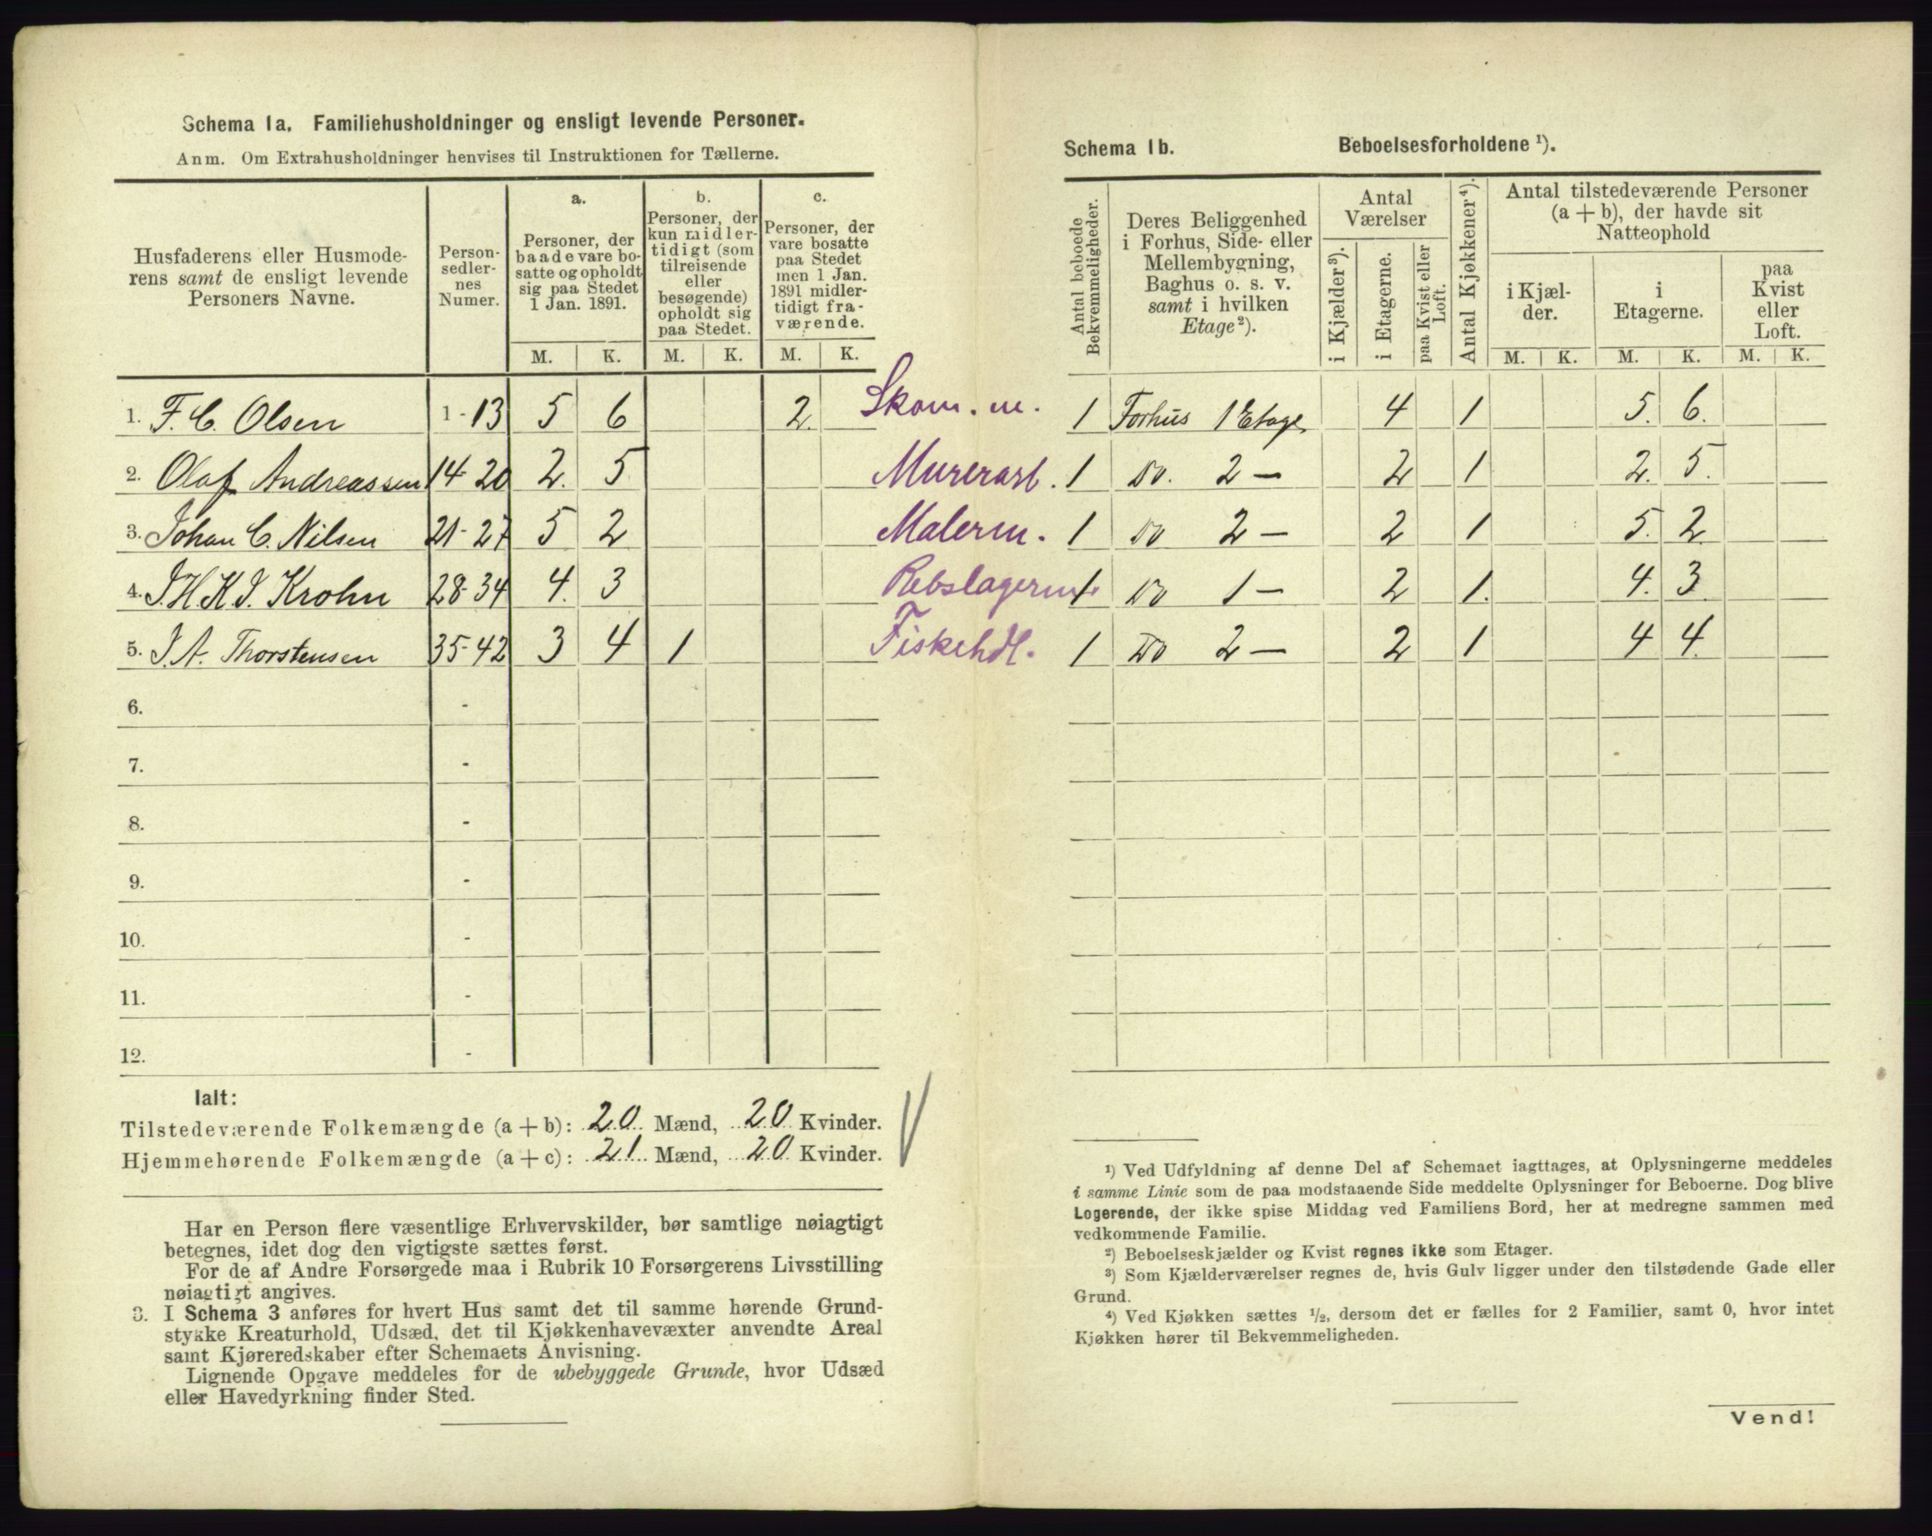 Schema 1a. Familiehusholdninger og ensligt levende Personer.
Anm. Om Extrahusholdninger henvises til Instruktionen for Tællerne.
Husfaderens eller Husmoderens samt de ensligt levende Personers Navne.
Personsedlernes Numer.
a. Personer, der baade vare bosatte og opholdt sig paa Stedet 1 Jan. 1891.
b. Personer, der kun midlertidigt (som tilreisende eller besøgende) opholdt sig paa Stedet.
c. Personer, der vare bosatte paa Stedet men 1 Jan. 1891 midlertidigt fraværende.
M. K. M. K. M. K.
1. F. C. Olsen 1-13 5 6 2. Skom. m.
2. Olaf Andreassen 14-20 2. 5 Murerarb.
3. Johan C. Nilsen 21-27 5 2 Malerm.
4. J. H. K. J. Krohn 28-34 4. 3 Rebslagerm.
5. J. A. Thorstensen 35-42 3 4 1 Fiskehdl.
6. -
7. -
8. -
9. -
10. -
11. -
12. -
Ialt:
Tilstedeværende Folkemængde (a + b): 20 Mænd, 20 Kvinder.
Hjemmehørende Folkemængde (a + c): 21 Mænd, 20 Kvinder.
Har en Person flere væsentlige Erhvervskilder, bør samtlige nøiagtigt
betegnes, idet dog den vigtigste sættes først.
For de af Andre Forsørgede maa i Rubrik 10 Forsørgerens Livsstilling
nøiagtigt angives.
3. I Schema 3 anføres for hvert Hus samt det til samme hørende Grund-
stykke Kreaturhold, Udsæd, det til Kjøkkenhavevæxter anvendte Areal
samt Kjøreredskaber efter Schemaets Anvisning.
Lignende Opgave meddeles for de ubebyggede Grunde, hvor Udsæd
eller Havedyrkning finder Sted.
Schema 1b. Beboelsesforholdene ¹).
Antal beboede Bekvemmeligheder.
Deres Beliggenhed i Forhus, Side- eller Mellembygning, Baghus o. s. v. samt i hvilken Etage ²).
Antal Værelser
i Kjælder ³).
i Etagerne.
paa Kvist eller Loft.
Antal Kjøkkener ⁴).
Antal tilstedeværende Personer (a + b), der havde sit Natteophold
i Kjælder.
i Etagerne.
paa Kvist eller Loft.
M. K. M. K. M. K.
1 Forhus 1 Etage 4 1 5. 6.
1 Do. 2 — 2 1 2. 5.
1 Do 2 — 2 1 5. 2.
1 Do 1 — 2 1. 4. 3.
1 Do 2 — 2 1 4 4.
¹) Ved Udfyldning af denne Del af Schemaet iagttages, at Oplysningerne meddeles
i samme Linie som de paa modstaaende Side meddelte Oplysninger for Beboerne. Dog blive
Logerende, der ikke spise Middag ved Familiens Bord, her at medregne sammen med
vedkommende Familie.
²) Beboelseskjælder og Kvist regnes ikke som Etager.
³) Som Kjælderværelser regnes de, hvis Gulv ligger under den tilstødende Gade eller
Grund.
⁴) Ved Kjøkken sættes ½, dersom det er fælles for 2 Familier, samt 0, hvor intet
Kjøkken hører til Bekvemmeligheden.
Vend!